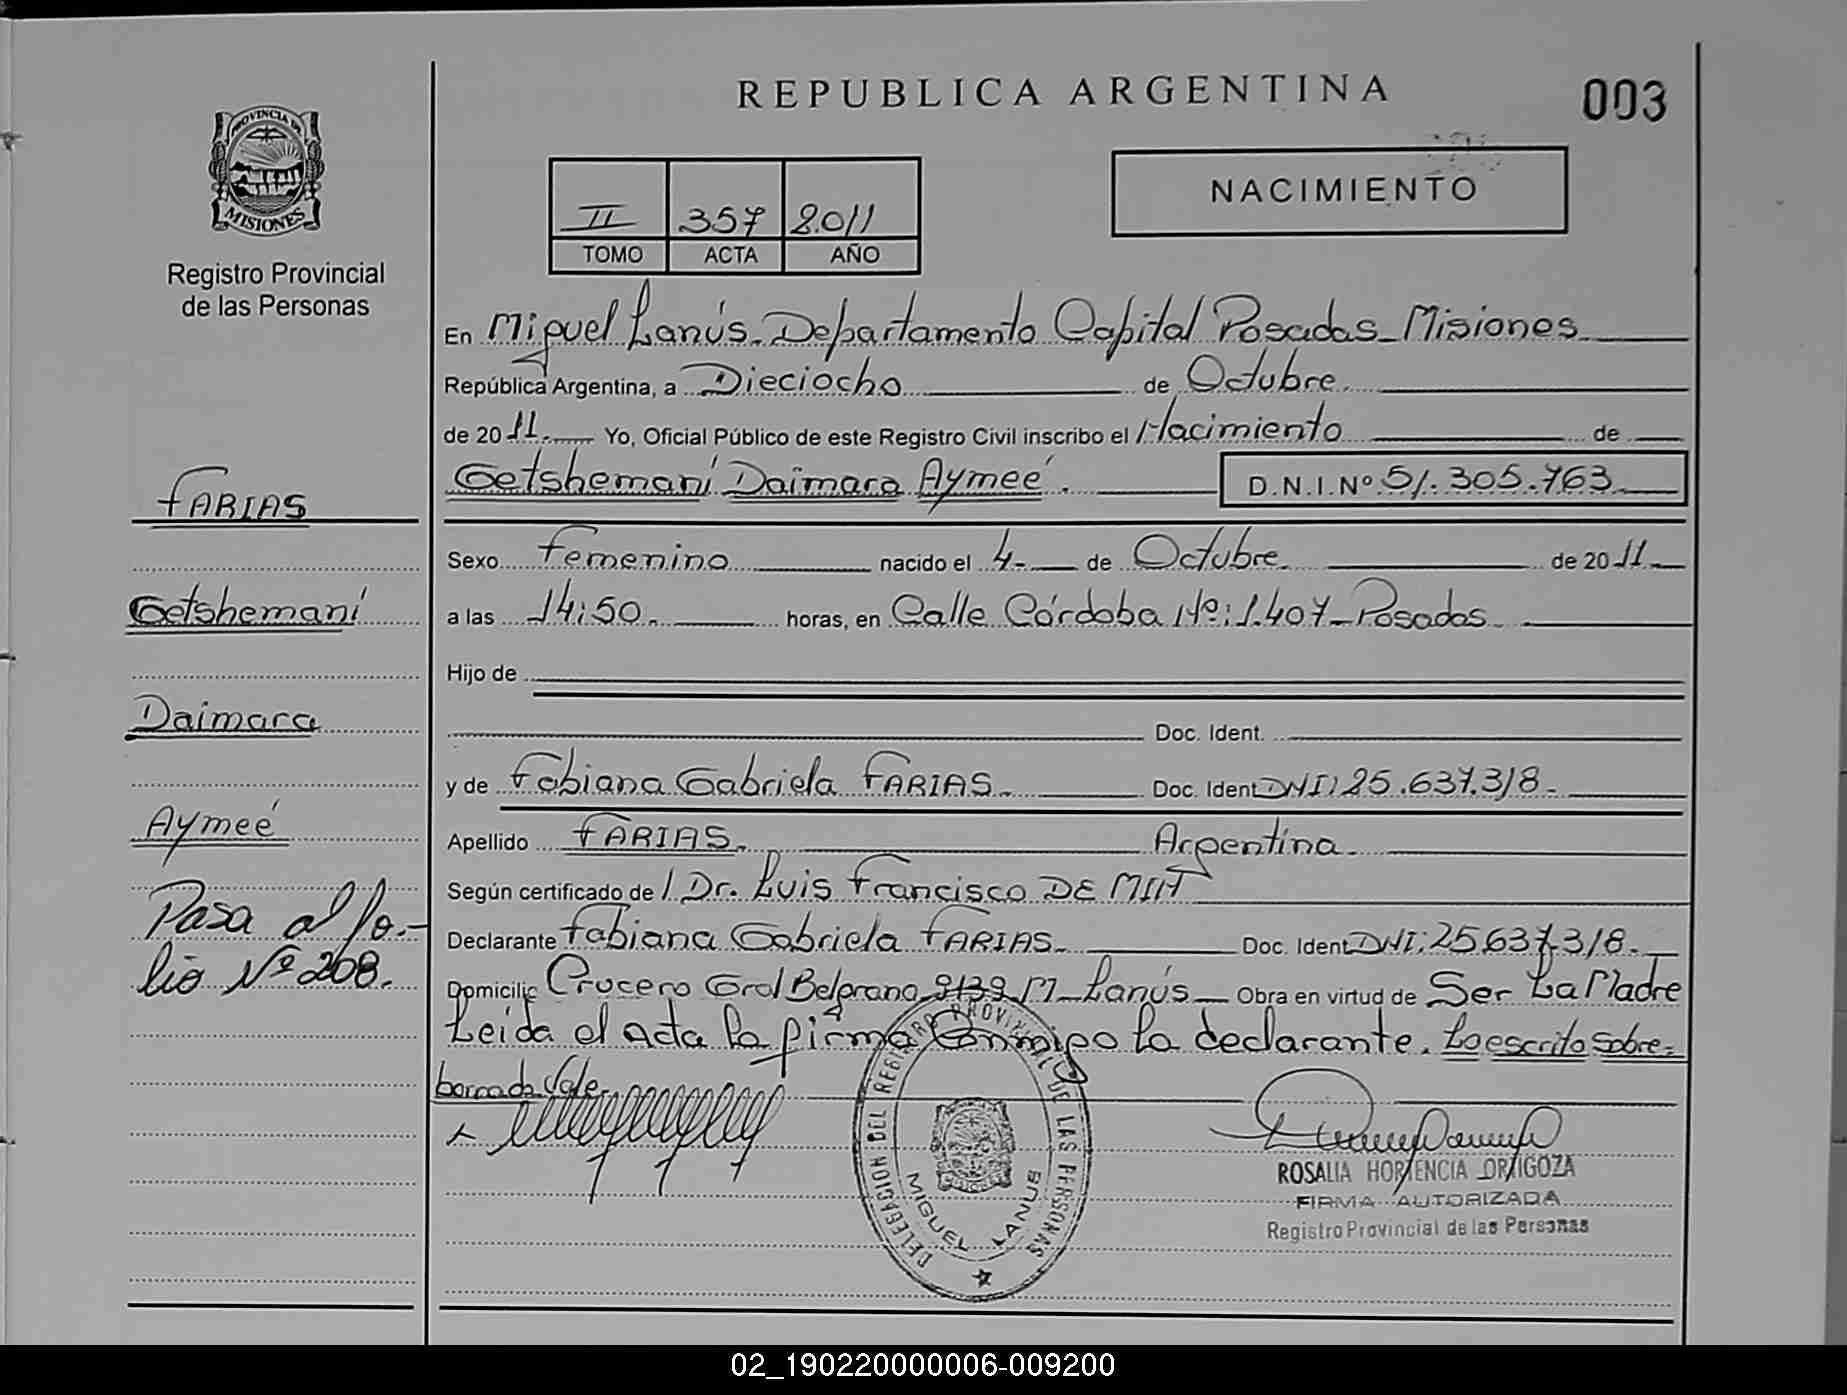 REPUBLICA ARGENTINA
003
PROVINCIA DE
MISIONES
Registro Provincial
de las Personas
II 357 2.011
TOMO ACTA AÑO
NACIMIENTO
En Miguel Lanús. Departamento Capital Posadas_Misiones
República Argentina, a Dieciocho de Octubre.
de 2011. Yo, Oficial Público de este Registro Civil inscribo el Nacimiento de
Getshemaní Daimara Aymeé. D.N.I.Nº 51.305.763
Sexo Femenino nacido el 4- de Octubre. de 2011
a las 14:50. horas, en Calle Córdoba Nº: 1.407_Posadas.
Hijo de
Doc. Ident.
y de Fabiana Gabriela FARIAS. Doc. Ident DNI: 25.637.318.
Apellido FARIAS. Argentina.
Según certificado de Dr. Luis Francisco DE
Declarante Fabiana Gabriela FARIAS. Doc. Ident DNI: 25.637.318.
Domicilio Crucero Gral Belgrano M_Lanús_ Obra en virtud de Ser La Madre
Leida el acta la firma Conmigo la declarante. Lo escrito sobre-
borrado Vale.
FARIAS
Getshemaní
Daimara
Aymeé
Pasa al fo.-
lio Nº 208.
DELEGACION DEL REGISTRO PROVINCIAL DE LAS PERSONAS
MIGUEL LANUS
ROSALIA HORTENCIA ORTIGOZA
FIRMA AUTORIZADA
Registro Provincial de las Personas
02_190220000006-009200